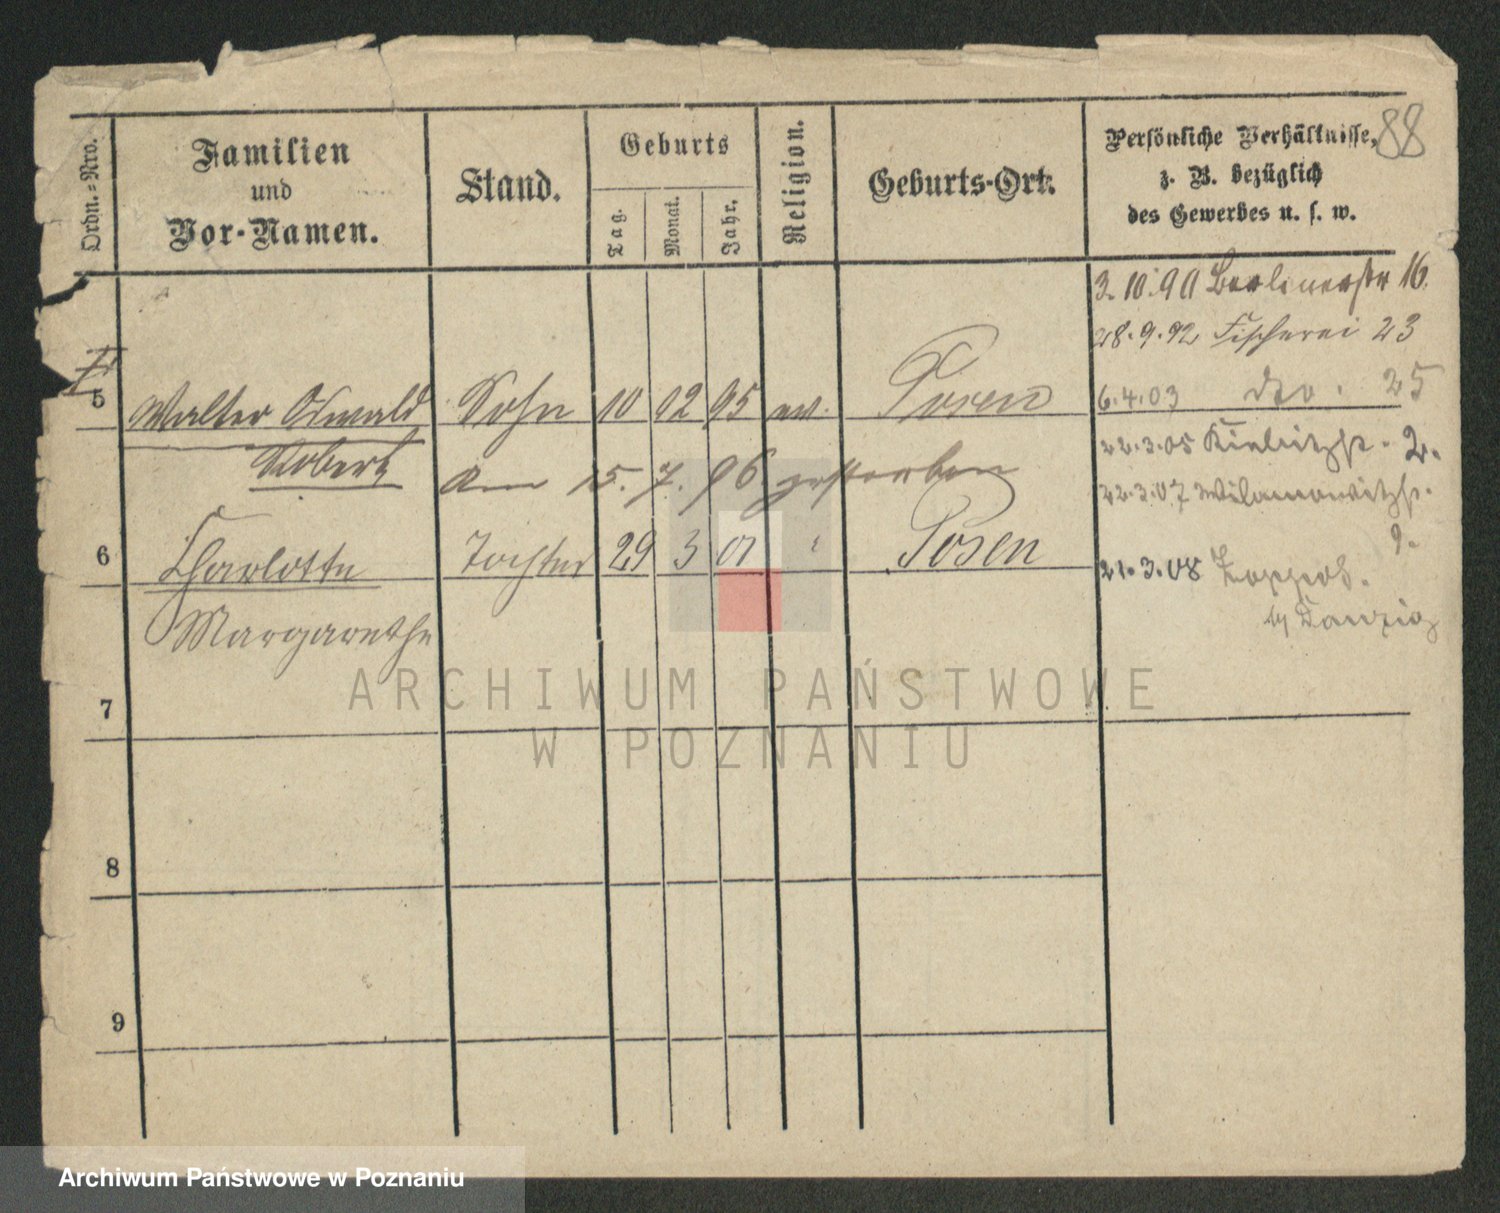 88
Ordn.=Nro.
Familien
und
Vor-Namen.
Stand.
Geburts
Tag.
Monat.
Jahr.
Religion.
Geburts-Ort.
Persönliche Verhältnisse,
z. B. bezüglich
des Gewerbes u. s. w.
3.10.90 Berlinerstr 16.
28.9.92 Fischerei 23
6.4.03 dto. 25
22.3.05 Kiebitzst. 2.
22.3.07 Wilamowitzst.
9.
21.3.08 Zoppot.
b/ Danzig
5 Walter Oswald Sohn 10 12 95 ev. Posen
Robert
Am 15.7.96 gestorben
6 Charlotte Tochter 29 3 01 Posen
Margarethe
7
8
9
ARCHIWUM PAŃSTWOWE
W POZNANIU
Archiwum Państwowe w Poznaniu